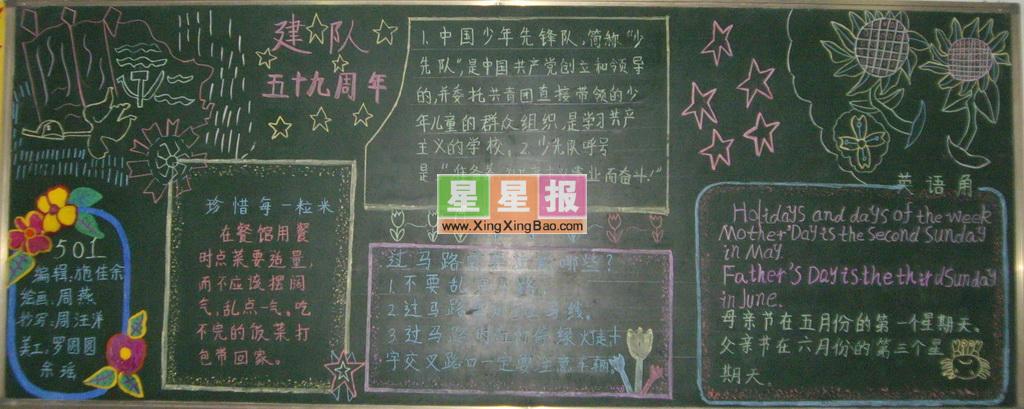 建队
五十九周年
1、中国少年先锋队,简称"少
先队",是中国共产党创立和领导
的,并委托共青团直接带领的少
年儿童的群众组织,是学习共产
主义的学校,2、少先队呼号
是
业而奋斗!"
星星报
www.XingXingBao.com
珍惜每一粒米
在餐馆用餐
时点菜要适量,
而不应该摆阔
气,乱点一气。吃
不完的饭菜打
包带回家。
501
编辑:施佳余
绘画:周燕
抄写:周汪洋
美工:罗圆圆
余瑶
过马路
哪些?
1.不要乱
2.过马路
线。
3.过马路时
绿火丁过十
字交叉路口一定要注意车辆
英语角
Holidays and days of the week
Mother'Day is the Second Sunday
in May.
Father'S Day is the third Sunday
in June.
母亲节在五月份的第一个星期天。
父亲节在六月份的第三个星
期天.